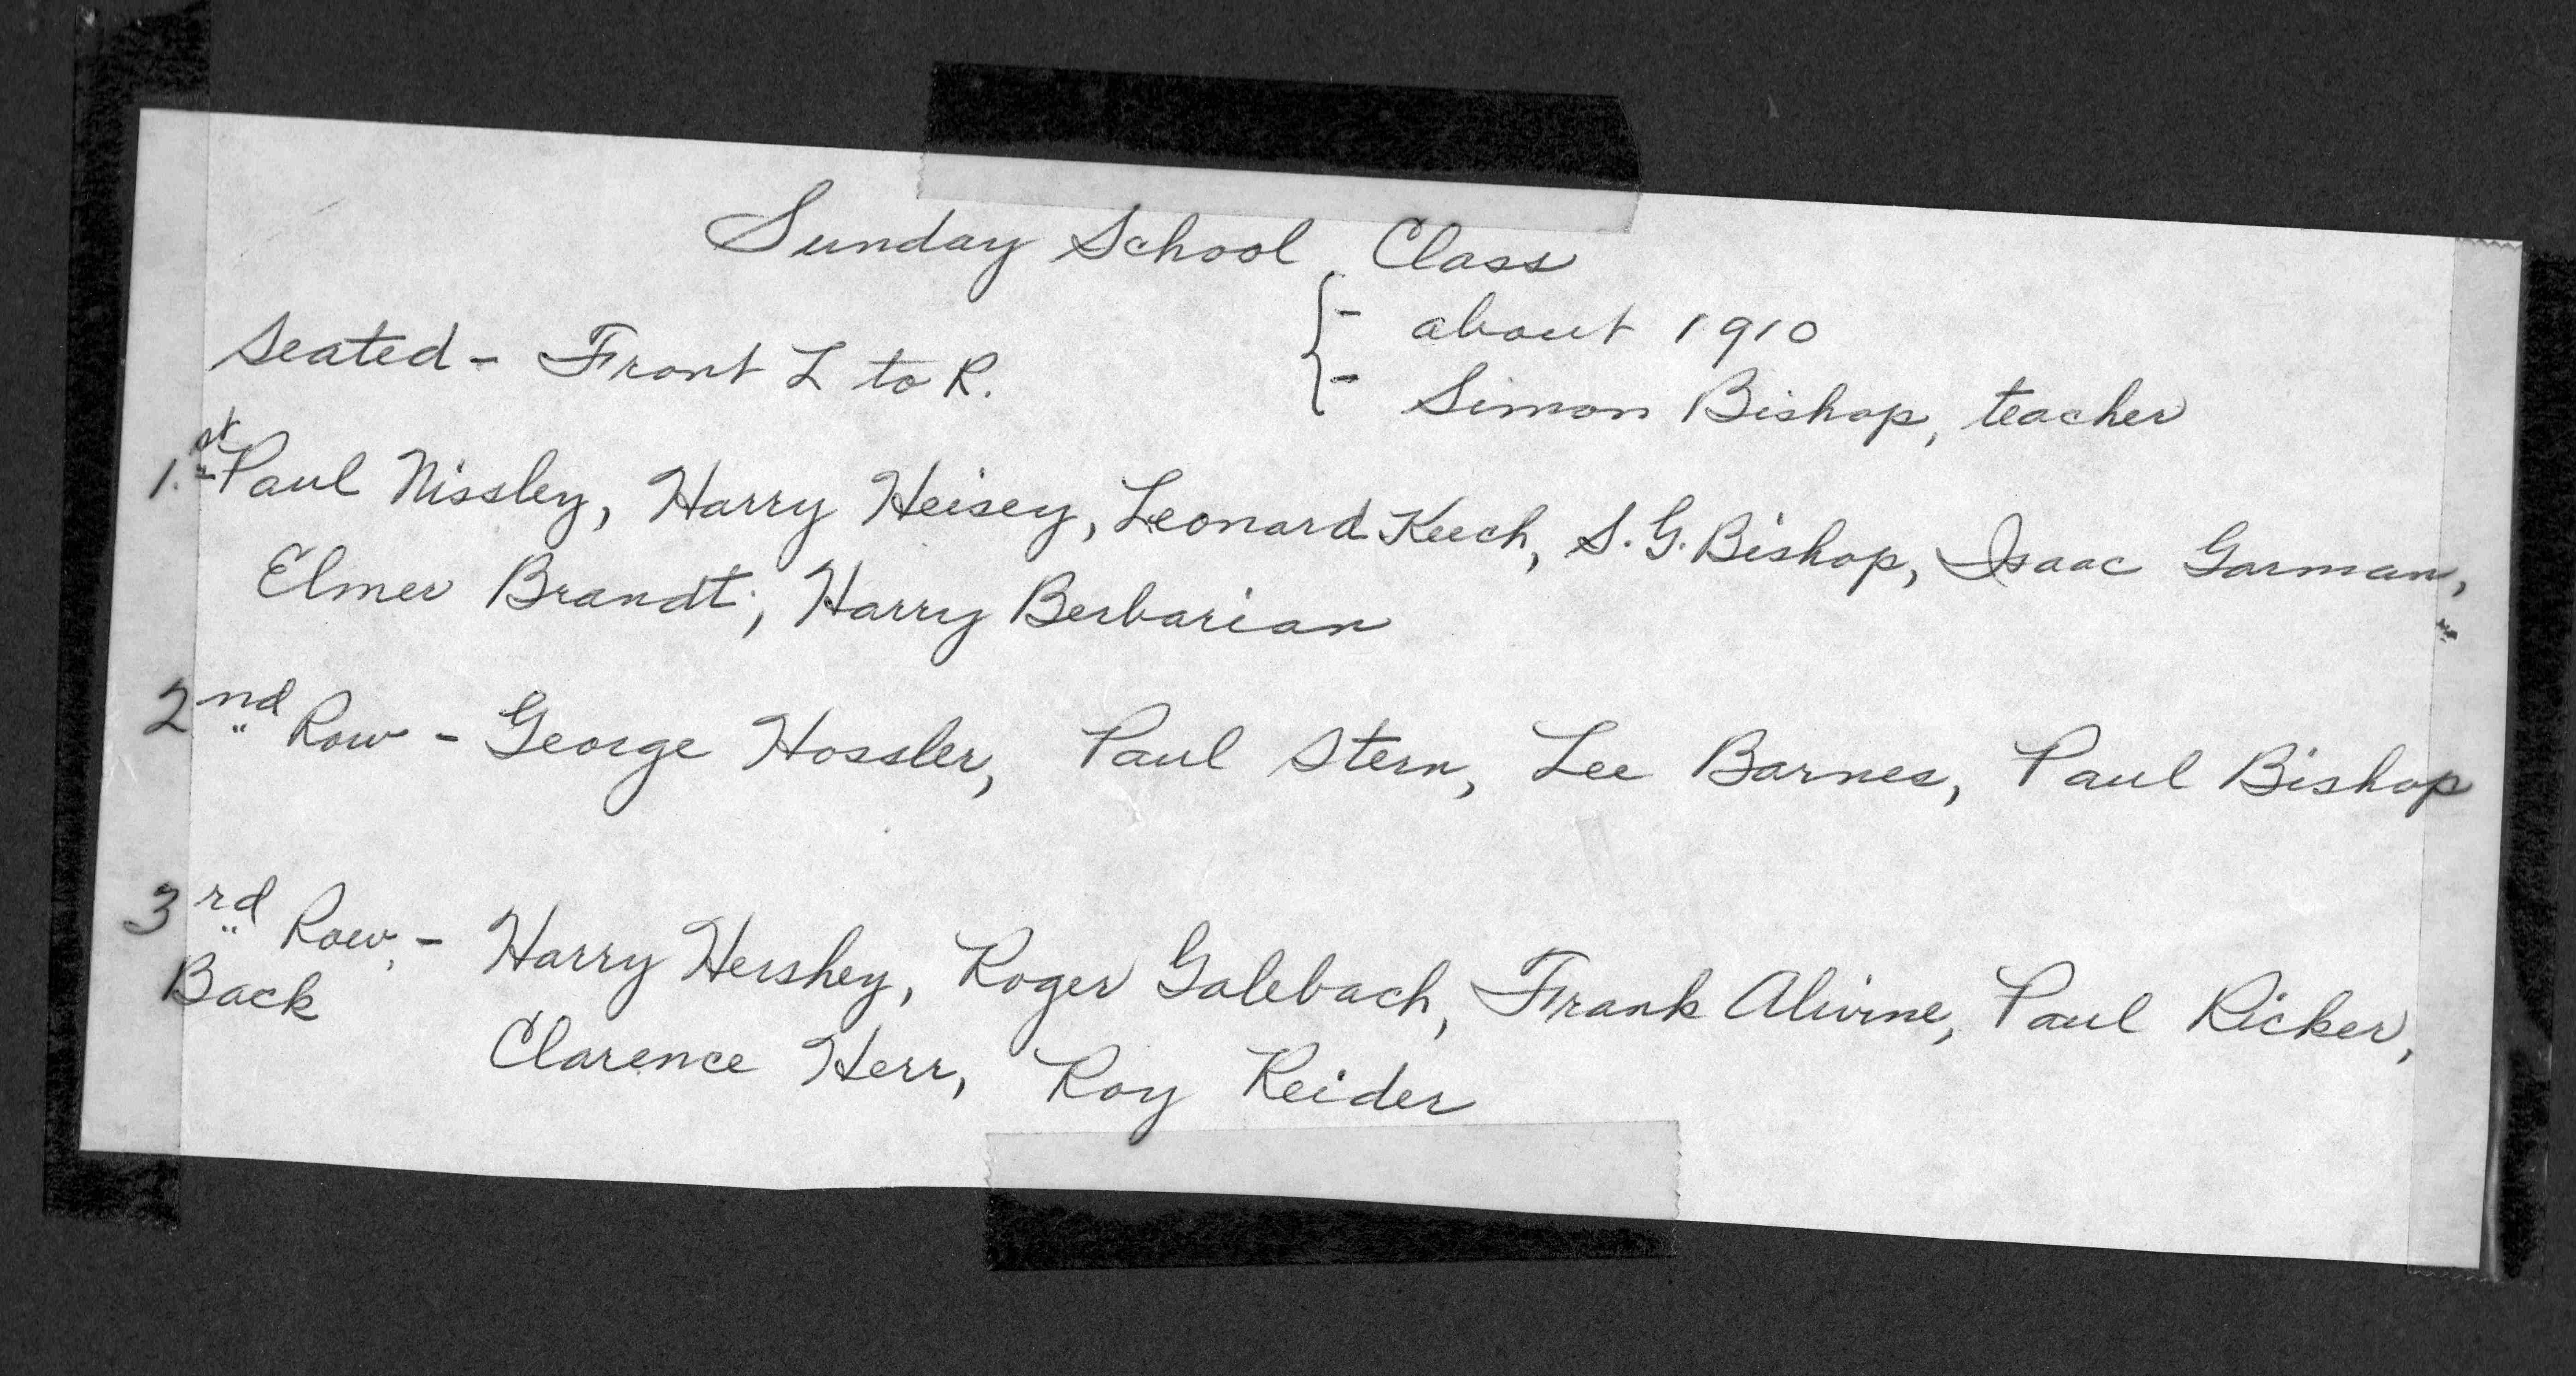 Sunday School Class
{ - about 1910
Seated - Front L to R.
- Simon Bishop, teacher
1.st Paul Nissley, Harry Heisey, Leonard Keech, S. G. Bishop, Isaac Garman,
Elmer Brandt, Harry Berbarian
2nd Row - George Hossler, Paul Stern, Lee Barnes, Paul Bishop
3rd Row, - Harry Hershey, Roger Galebach, Frank Aliwine, Paul Ricker,
Back
Clarence Herr, Roy Reider